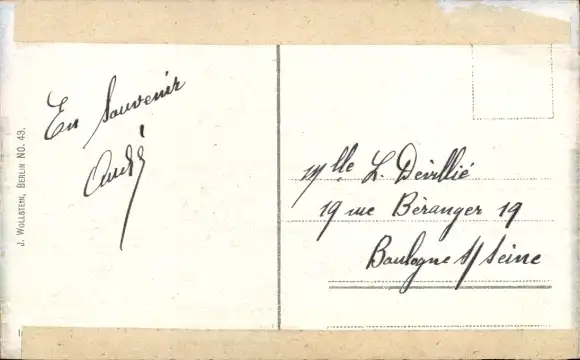 En Souvenir
André
Mlle L. Dévillié
19 rue Béranger 19
Boulogne s/ Seine
J. WOLLSTEIN, BERLIN NO. 43.